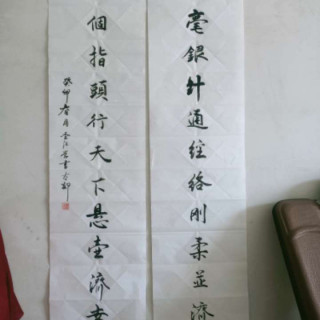 毫銀針通經絡剛柔並濟
個指頭行天下懸壺濟
癸卯春月